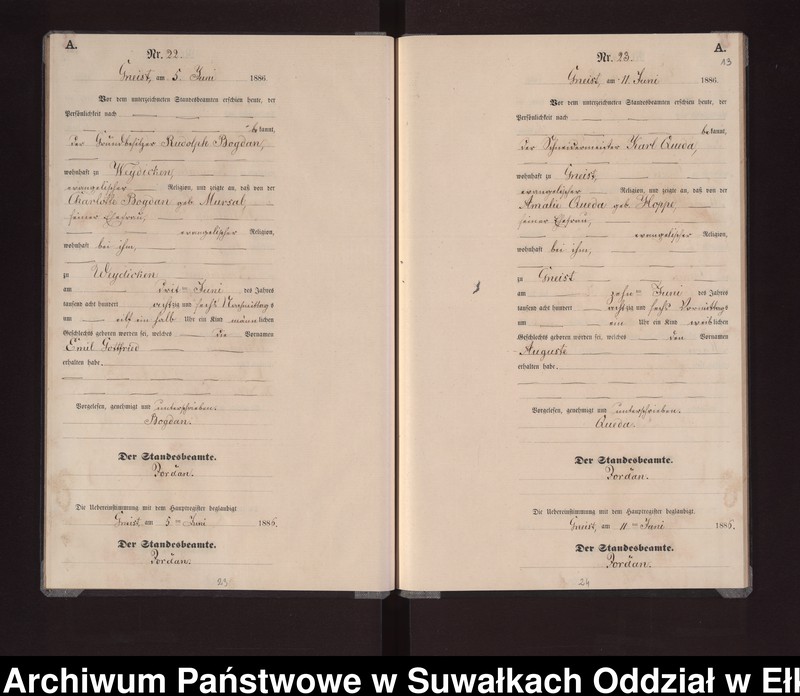 A.
Nr. 22.
Gneist, am 5. Juni 1886.
Vor dem unterzeichneten Standesbeamten erschien heute, der
Persönlichkeit nach
bekannt,
der Grundbesitzer Rudolph Bogdan,
wohnhaft zu Weydicken,
evangelischer Religion, und zeigte an, daß von der
Charlotte Bogdan geb. Mursal,
seiner Ehefrau,
evangelischer Religion,
wohnhaft bei ihm,
zu Weydicken
am Juni des Jahres
tausend acht hundert achtzig und sechs Vormittags
um Uhr ein Kind männlichen
Geschlechts geboren worden sei, welches die Vornamen
Emil Gottfried
erhalten habe.
Vorgelesen, genehmigt und unterschrieben.
Bogdan.
Der Standesbeamte.
Jordan.
Die Uebereinstimmung mit dem Hauptregister beglaubigt
Gneist, am 5ten Juni 1886.
Der Standesbeamte.
Jordan.
23
A.
13
Nr. 23.
Gneist, am 11. Juni 1886.
Vor dem unterzeichneten Standesbeamten erschien heute, der
Persönlichkeit nach
bekannt,
der Schneidermeister Karl Quida,
wohnhaft zu Gneist,
evangelischer Religion, und zeigte an, daß von der
Amalie Quida geb. Hoppe,
seiner Ehefrau,
evangelischer Religion,
wohnhaft bei ihm,
zu Gneist
am zehnten Juni des Jahres
tausend acht hundert achtzig und sechs Vormittags
um ein Uhr ein Kind weiblichen
Geschlechts geboren worden sei, welches den Vornamen
Auguste
erhalten habe.
Vorgelesen, genehmigt und unterschrieben.
Quida.
Der Standesbeamte.
Jordan.
Die Uebereinstimmung mit dem Hauptregister beglaubigt.
Gneist, am 11ten Juni 1886.
Der Standesbeamte.
Jordan.
24
Archiwum Państwowe w Suwałkach Oddział w Eł